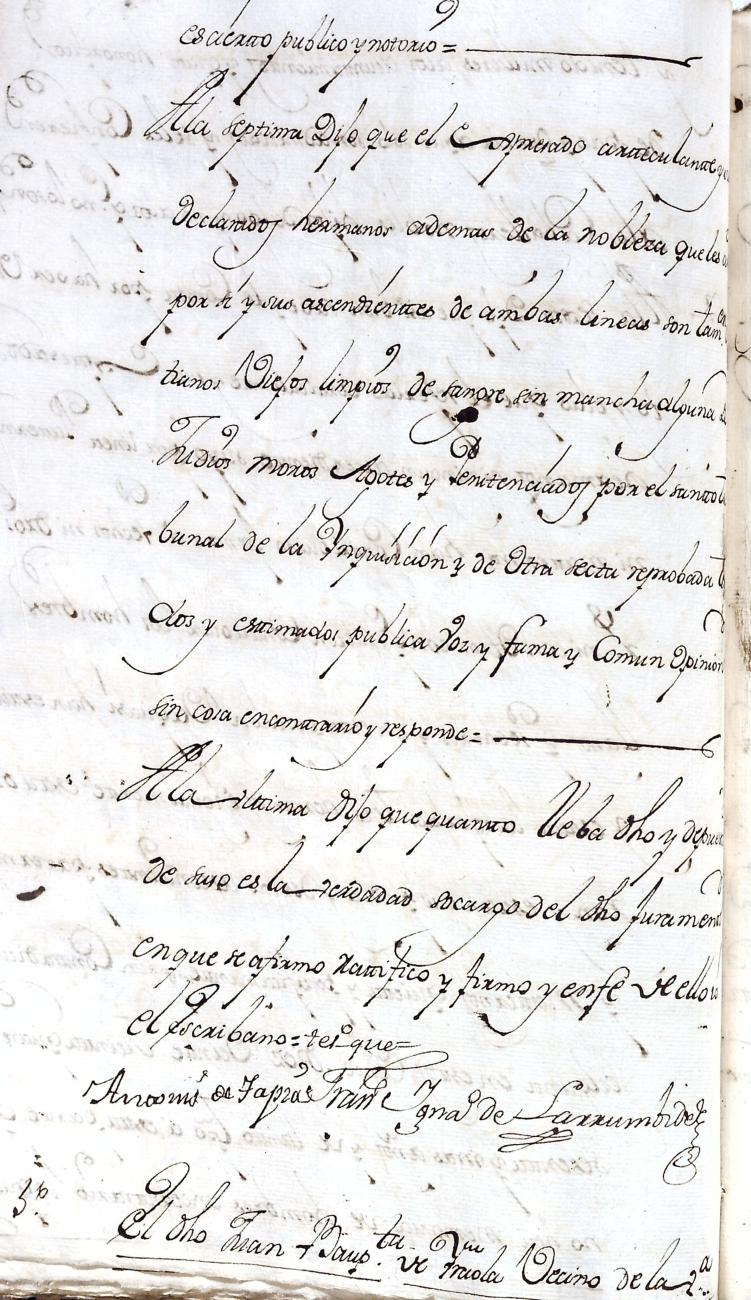 es cierto publico y notorio =
A la septima Dijo que el Expresado articulante y
declarados hermanos ademas de la nobleza que les
por si y sus ascendientes de ambas lineas son tam
tianos Viejos limpios de sangre sin mancha alguna
Judios moros Agotes y Penitenciados por el santo
bunal de la Ynquisición y de Otra secta reprobada
dos y estimados publica voz y fama y Comun Opinion
sin cosa en contrario y responde =
A la ultima dijo que quanto lleba dho y depue
de suso es la verdadad so cargo del dho Juramen
en que se afirmo Ratifico y firmo y en fe de ello
el Escribano = tes.º que =
Antonio de Ignaº de Larrumbide
3º
El dho Juan Baupta de Vecino de la